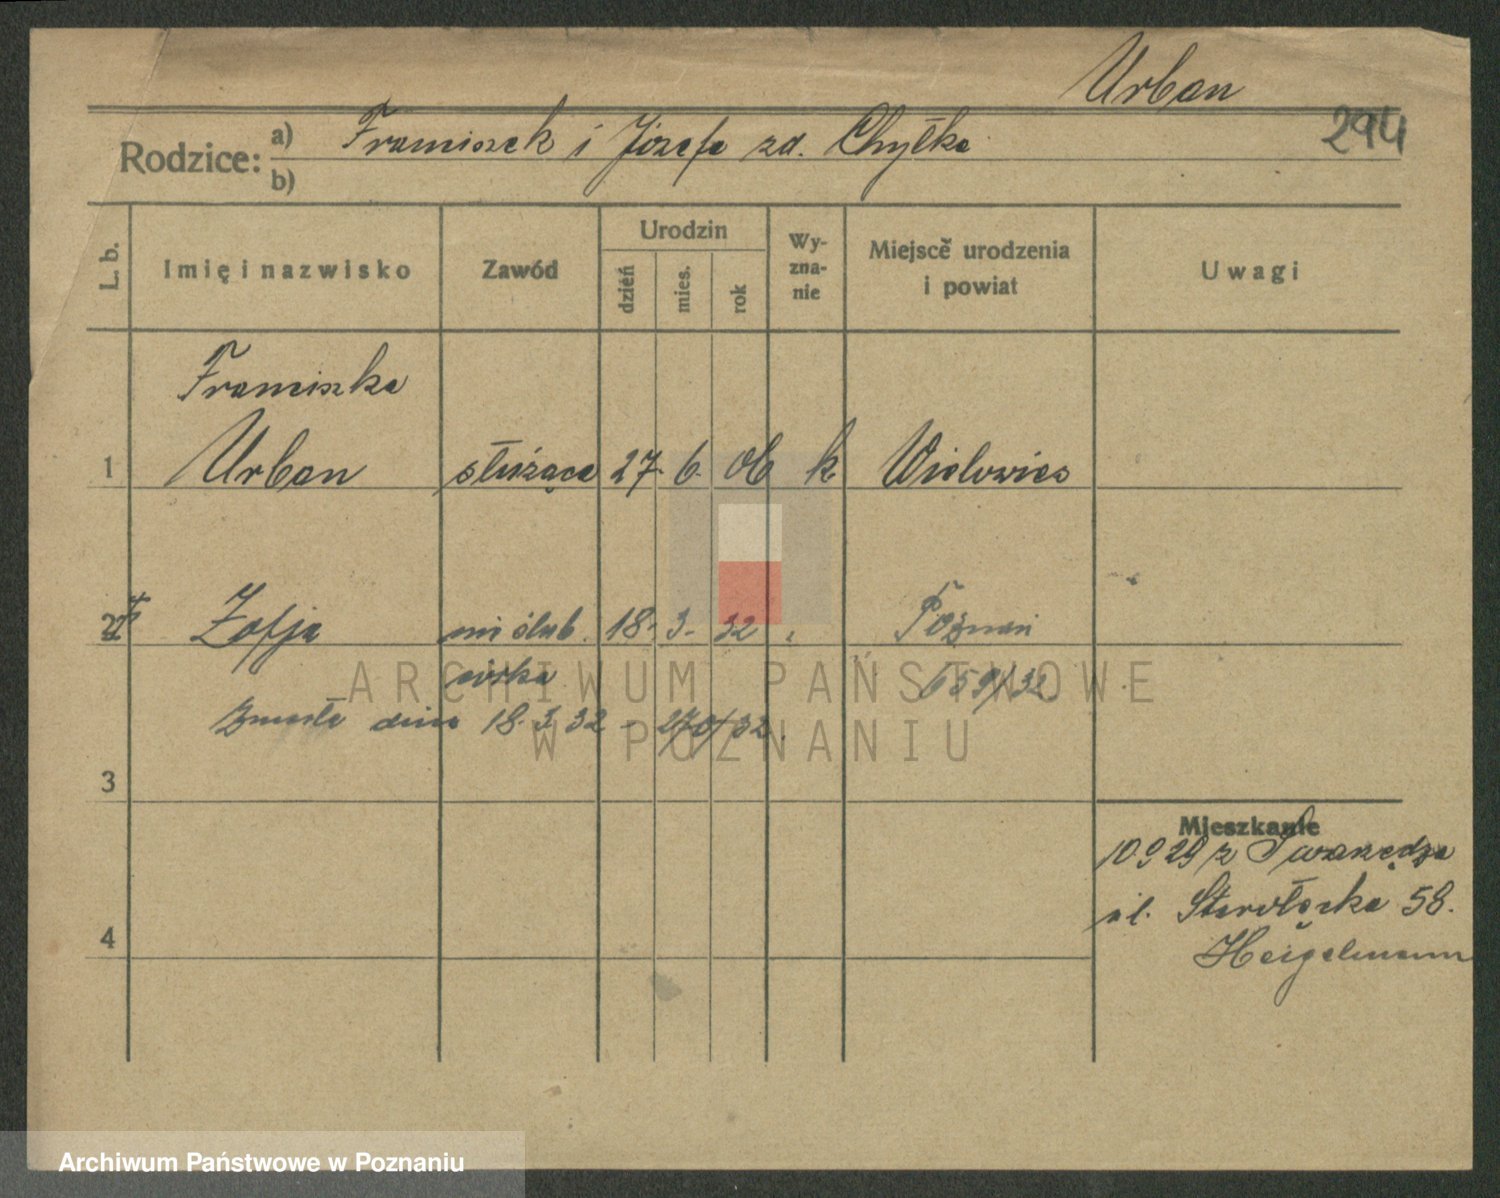 Urban
294
Rodzice: a) Franciszek i Józefa zd. Chyłka
b)
L. b.
Imię i nazwisko
Zawód
Urodzin
dzień
mies.
rok
Wy-
zna-
nie
Miejsce urodzenia
i powiat
Uwagi
Franciszka
1 Urban służąca 27. 6. 06 k. Wielowieś
2 Zofja nieślub. 18. 3. 32 Poznań
córka 659/32
Zmarła dnia 18. 3. 32 - 270/32.
3
4
Mieszkanie
10 9 29 z Swarzędza
ul. Starołęcka 58.
Heigelmann
ARCHIWUM PAŃSTWOWE
W POZNANIU
Archiwum Państwowe w Poznaniu